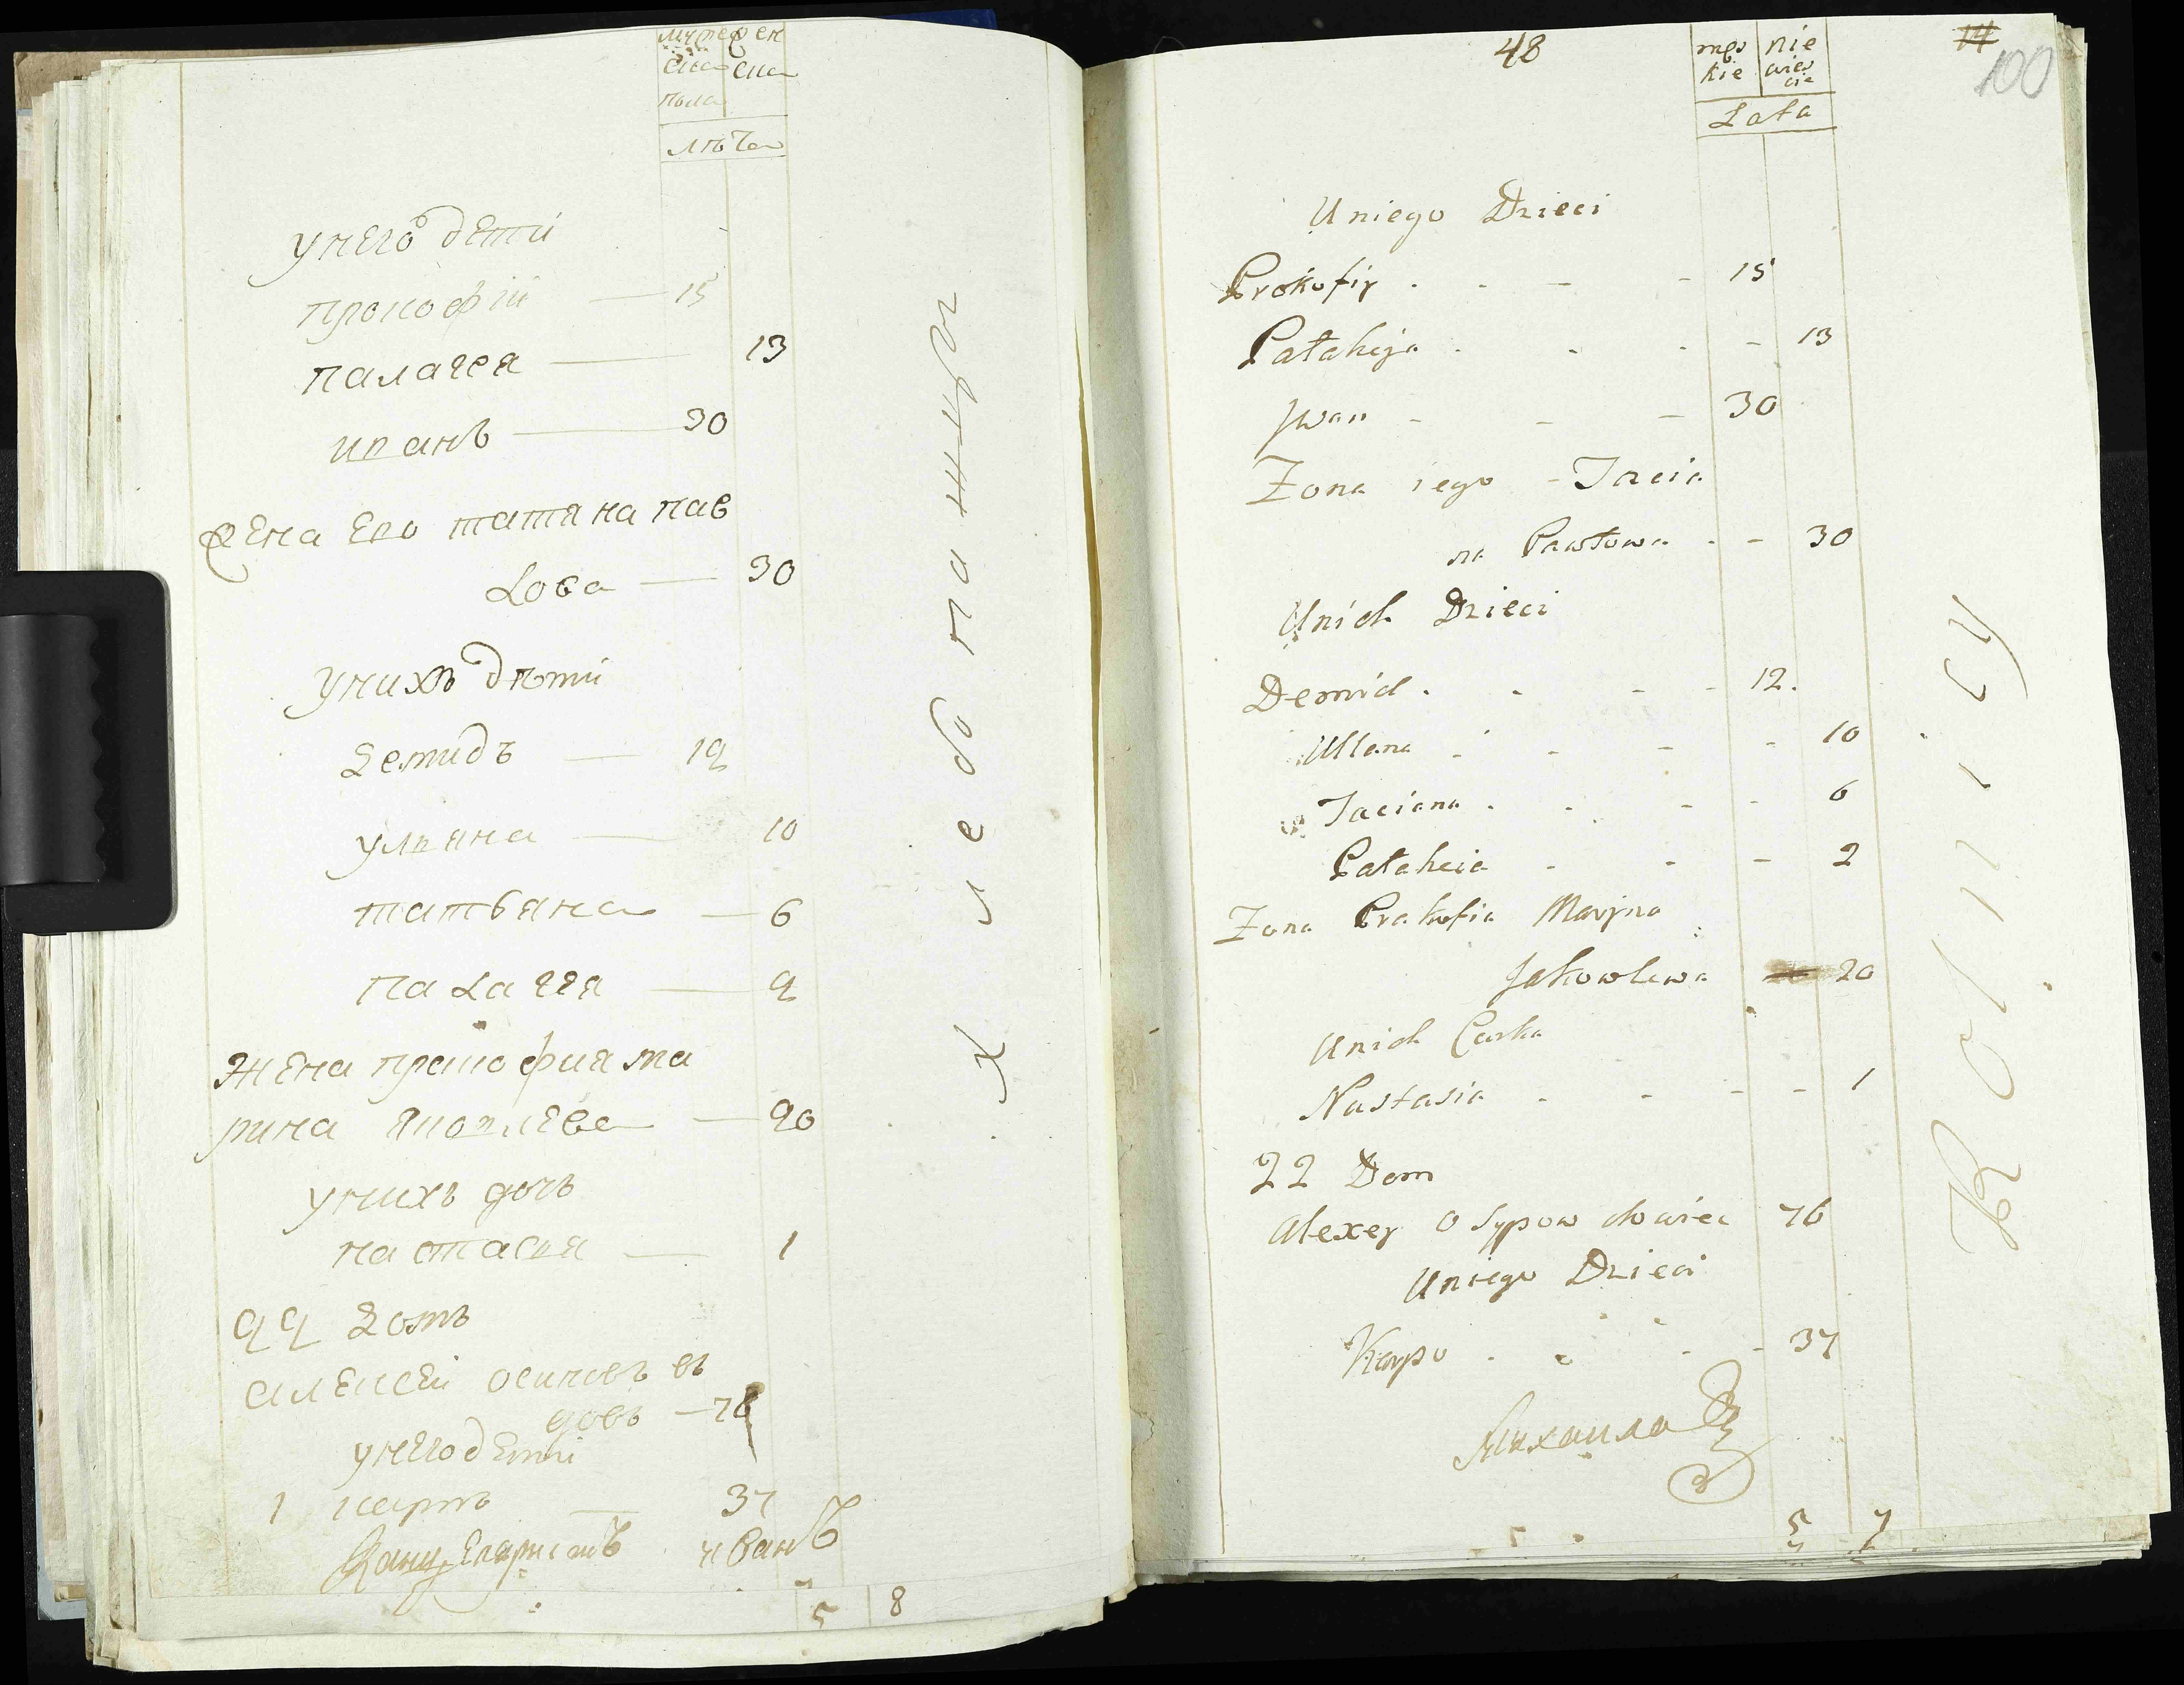 мужеска женска
пола
лѣта
у него дети
прокофіи — 15
палагея — 13
иванъ — 30
жена Его татяна пав
лова — 30
у нихъ дѣти
демидъ — 12
уляна — 10
татьяна — 6
палагея — 2
жена пракофия ма
рина яковлева — 20
у нихъ дочь
настасья — 1
22 домъ
алексей осиповъ въ
довъ — 76
у него дети
1 карпъ — 37
иванъ
5 8
Хлебопашцы
48
męs kie nie wies cie
14
100
Lata
U niego Dzieci
Prokofiy . - - - 15
Pałahija . - - - 13
Jwan - - - 30
Zona iego - Tacia
na Pawłowa . - 30
U nich Dzieci
Demid . - - - 12.
Ullana . - - - 10
Taciana . - - - 6
Pałaheia - - - 2
Zona Prakofia Maryna
Jakowlewa 20
U nich Curka
Nastasia - - - - 1
22 Dom
Alexey Osypow wdowiec 76
U niego Dzieci
Karpo . - - - 37
Михаила
5 7
Rolnicy